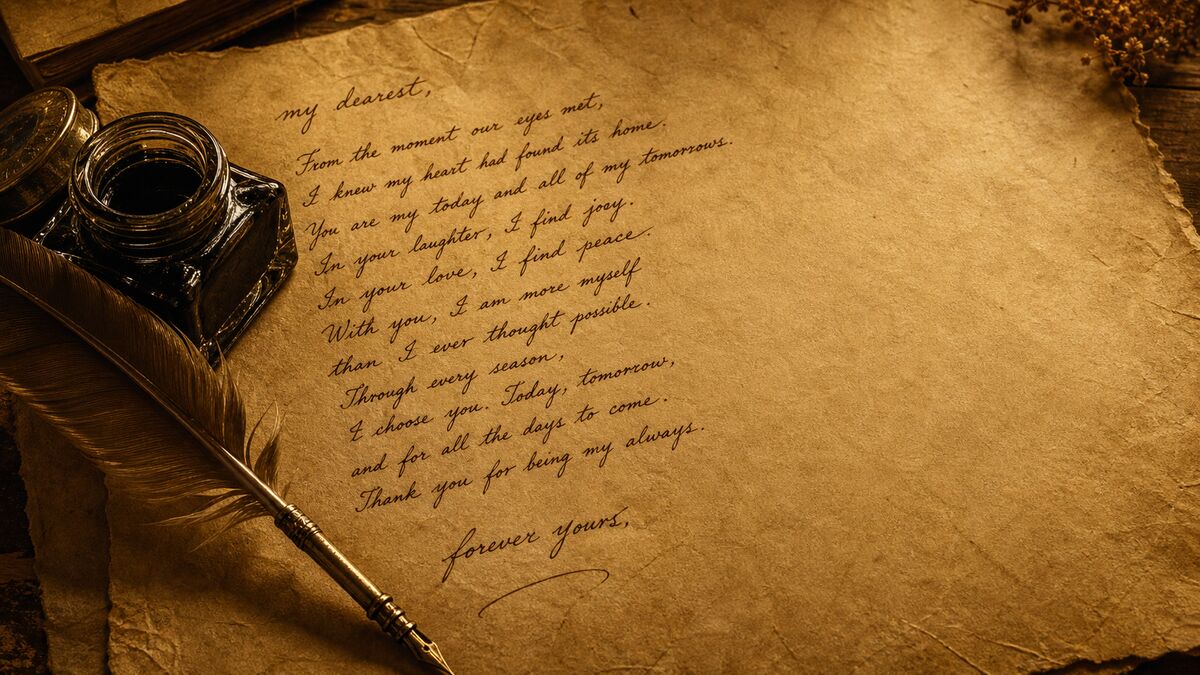 my dearest,
From the moment our eyes met,
I knew my heart had found its home.
You are my today and all of my tomorrows.
In your laughter, I find joey.
In your love, I find peace.
With you, I am more myself
than I ever thought possible.
Through every season,
I choose you. Today, tomorrow,
and for all the days to come.
Thank you for being my always.
forever yours,